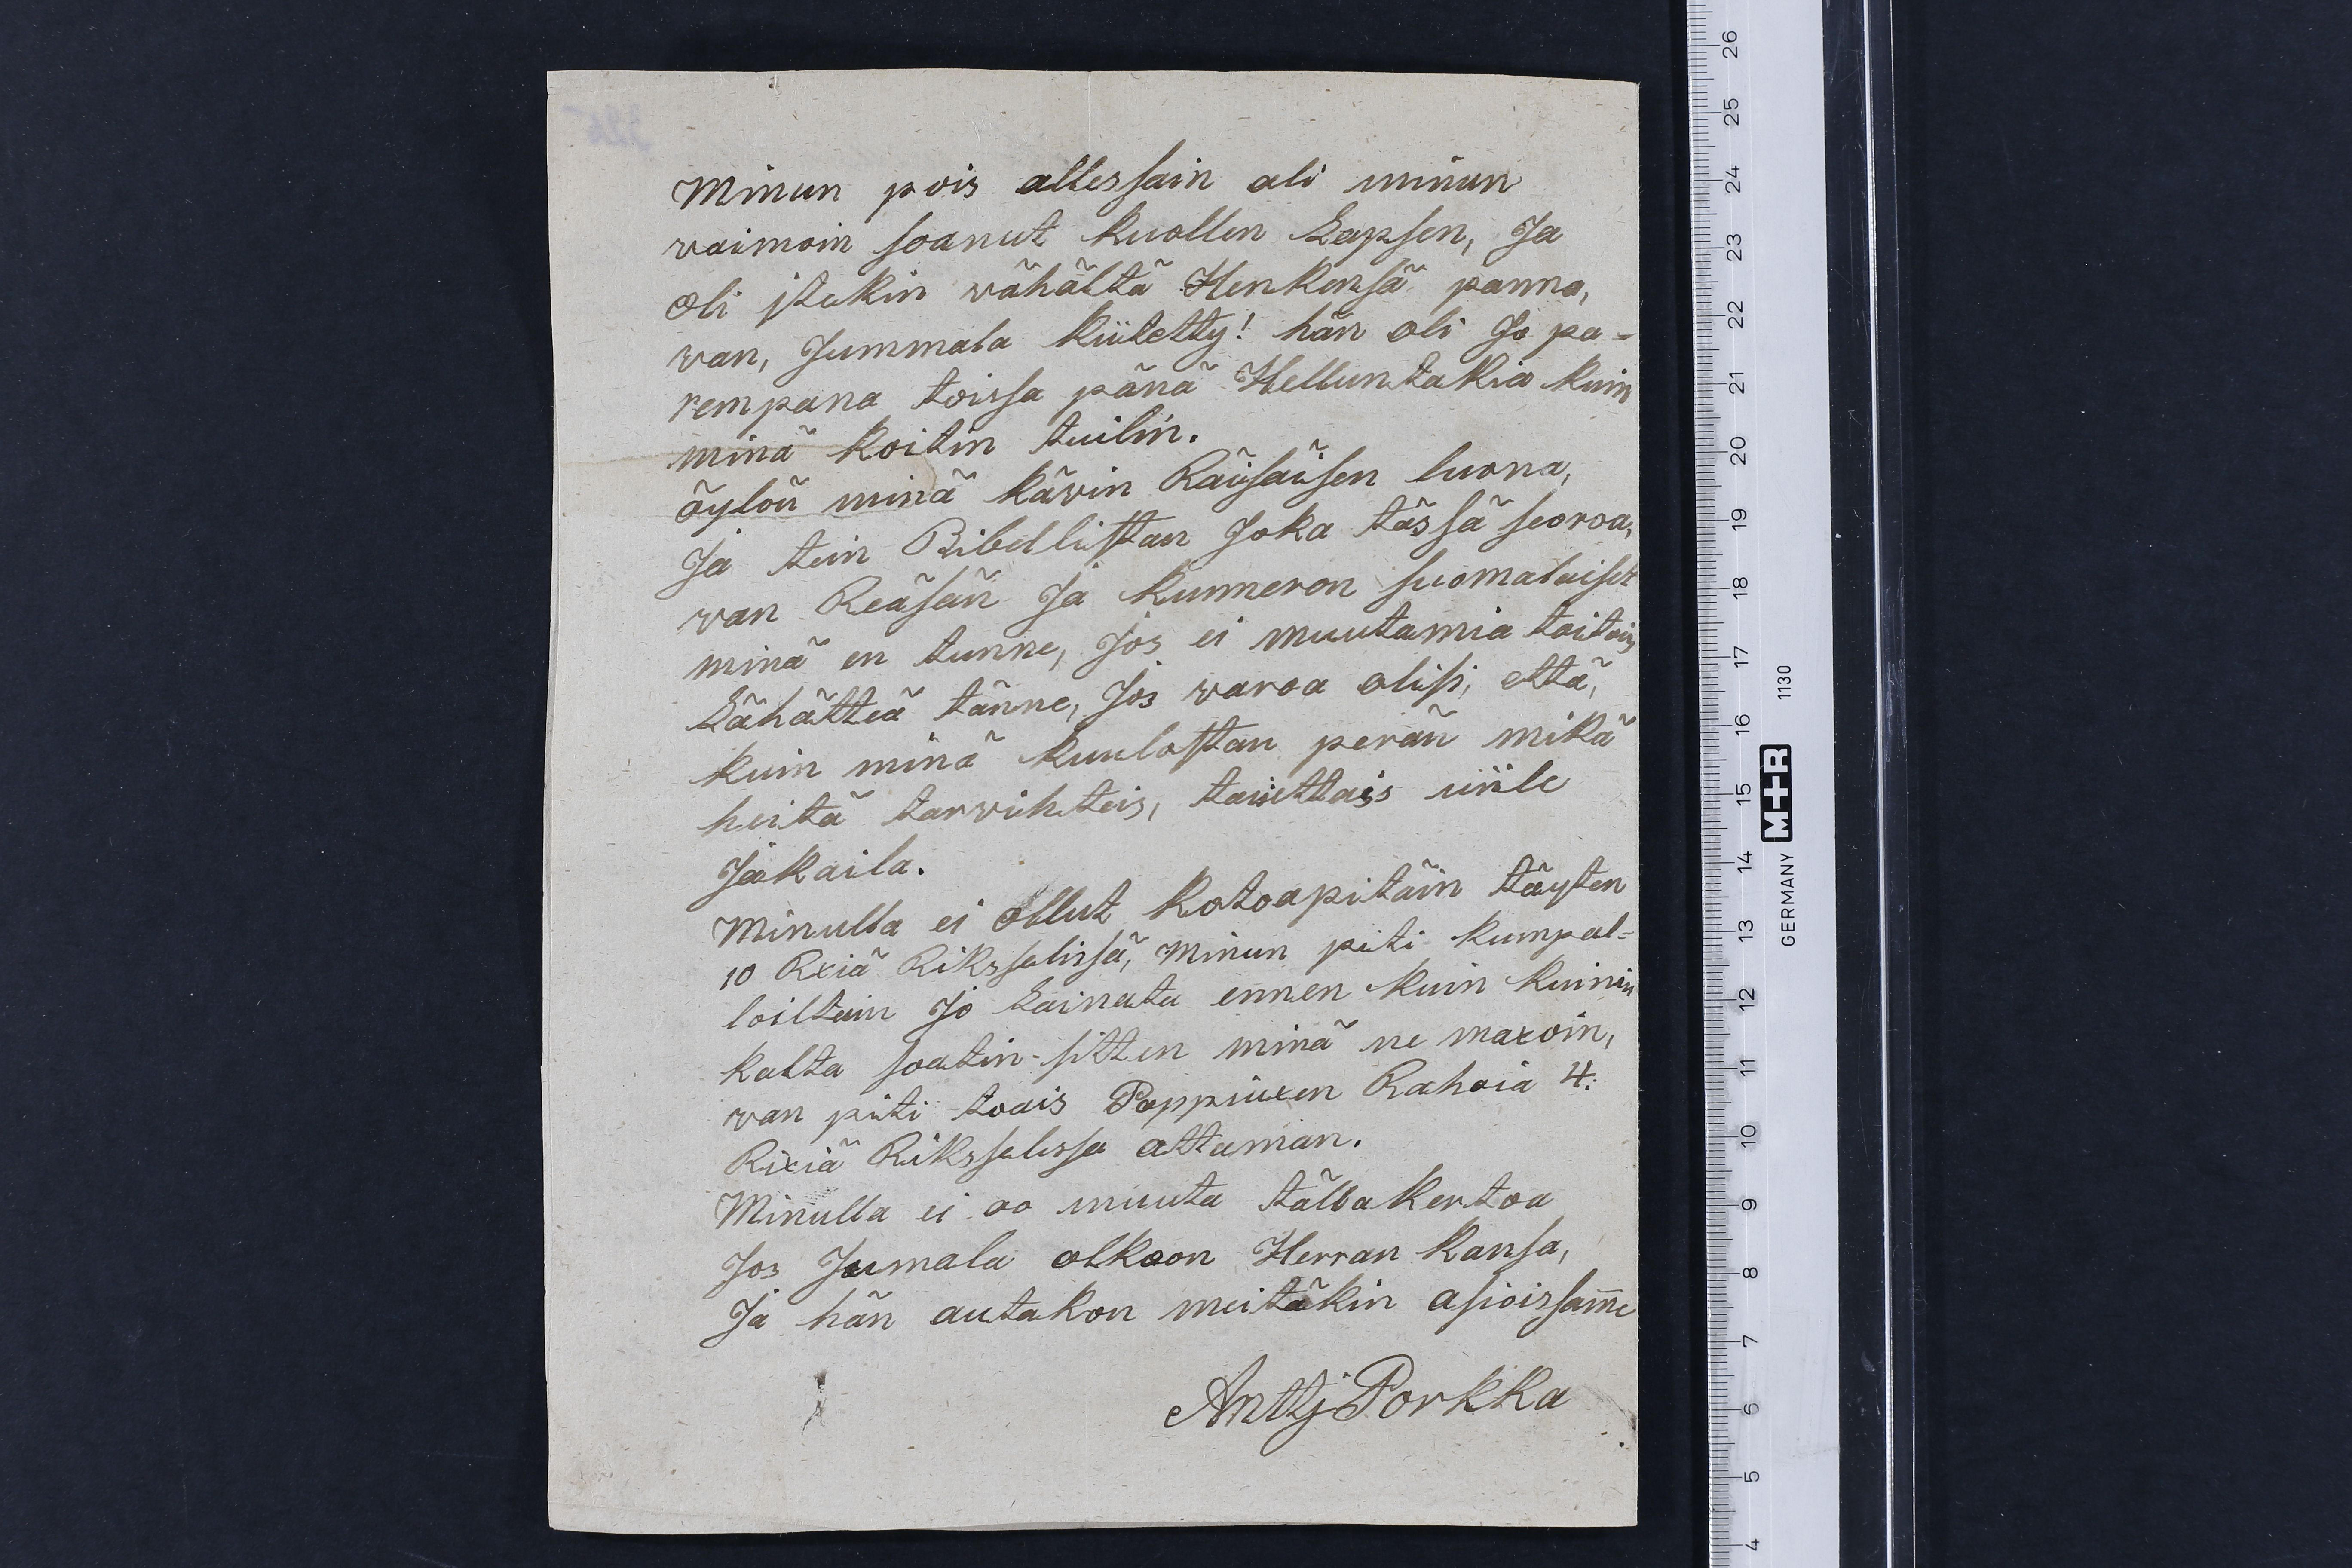 Minun pois allessain oli minun
vaimoin soanut kuollen Lapsen, Ja
oli itekin vähältä Henkensä panna,
van, Jummala kiitetty! hän oli Jo pa-
rempana toissa pänä Helluntakia kuin
minä koitin tuilin.
äylön minä kävin Räisäisen luona,
Ja tein Bibellistan Joka tässä seorva,
van Reäsän Ja kunneron suomalaiset
minä en tunne, Jos ei muutamia taitais
Lähätteä tänne, Jos varoa olisi, että,
kuin minä kuulostan perän mikä
heitä tarvihteis, tauttais niile
Jäkaila.
Minulla ei ollut kotoapitäin täyten
10 Rxiä Rikssalissä, minun piti kumpal-
loiltain Jo Lainata ennen kuin kuinin
kalta soatin - sitten minä ne maxoin,
van piti toais Poppiuxen Rahoia 4:
Rixiä Rikssalissa attaman.
Minulla ei oo muuta tälla kertoa
Jos Jumala olkoon Herran kansa,
Ja hän autakon meitäkin asioissam̄e
Anttj Porkka
4
5
6
7
8
9
10
11
12
13
14
15
16
17
18
19
20
21
22
23
24
25
26
GERMANY M+R 1130